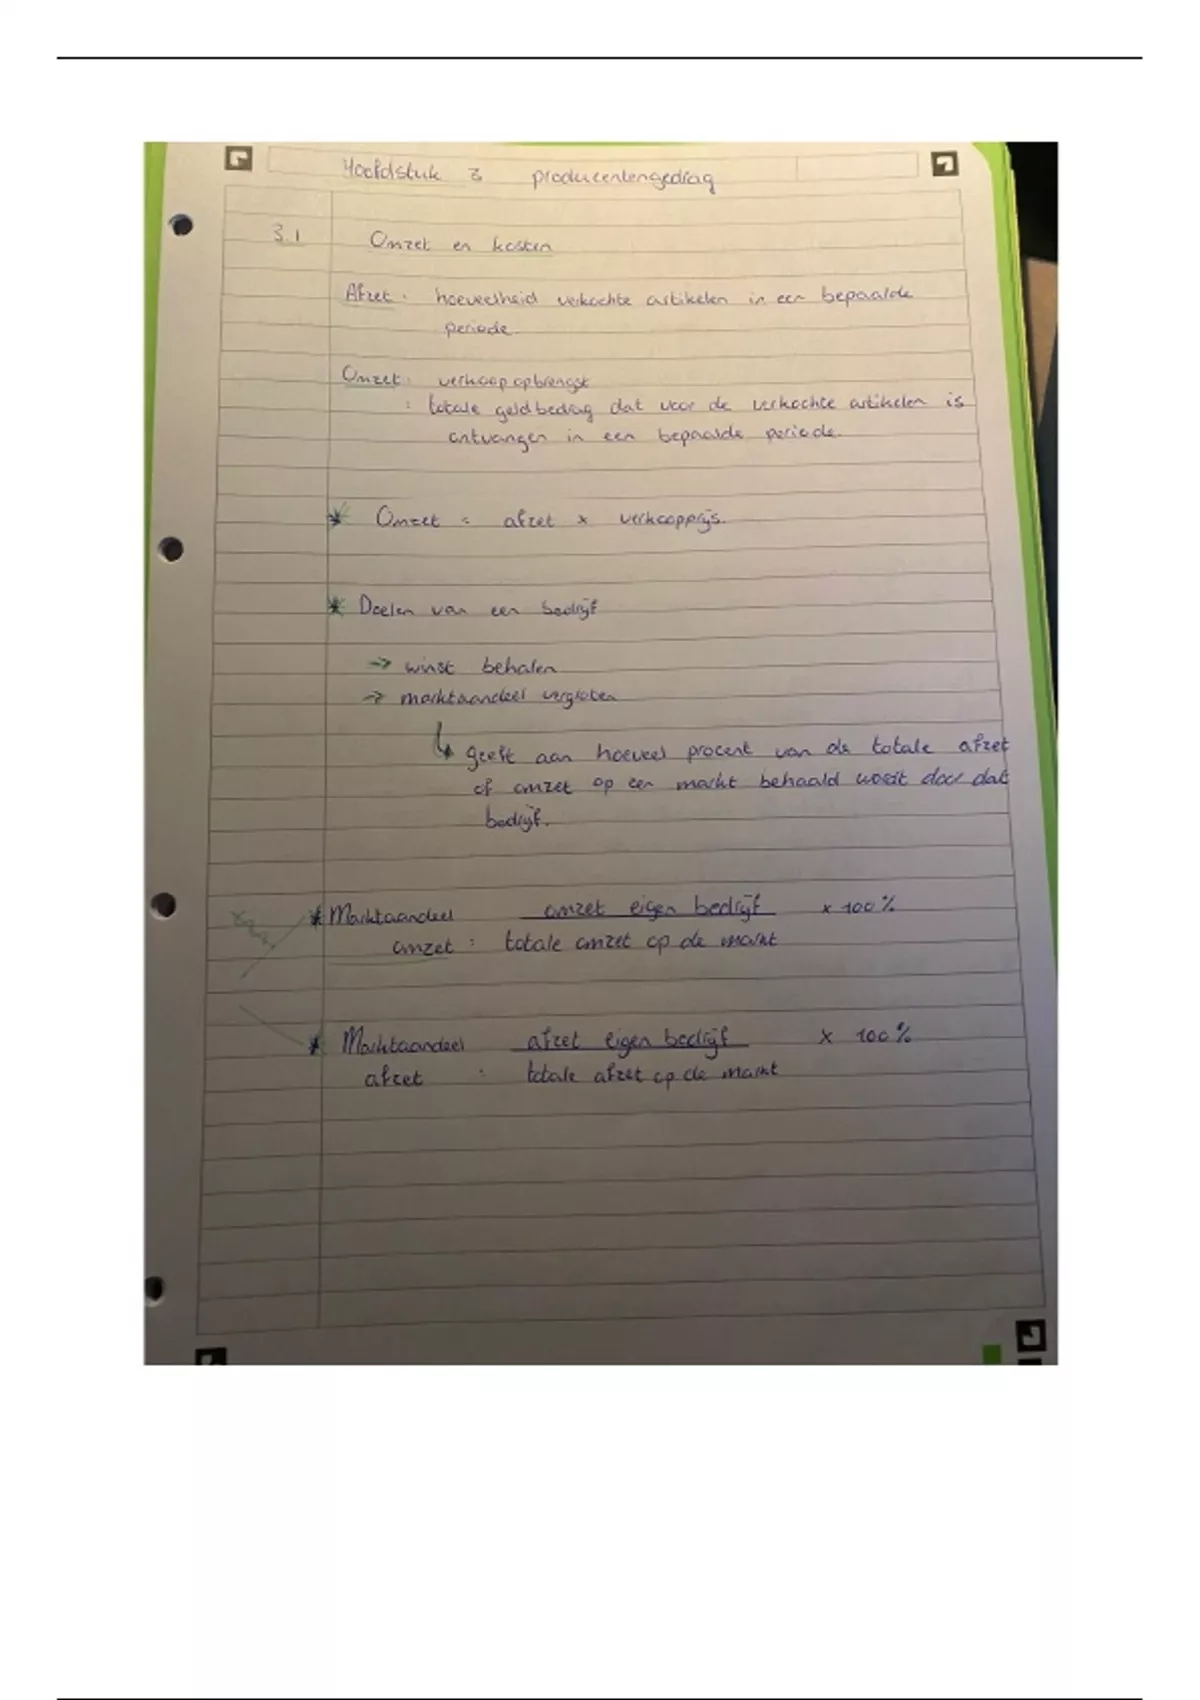 Hoofdstuk 3 producentengedrag
3.1 Omzet en kosten
Afzet: hoeveelheid verkochte artikelen in een bepaalde
periode.
Omzet: verkoopopbrengst
: totale geldbedrag dat voor de verkochte artikelen is
ontvangen in een bepaalde periode.
* Omzet = afzet x verkoopprijs.
* Doelen van een bedrijf
-> winst behalen
-> marktaandeel vergroten
↳ geeft aan hoeveel procent van de totale afzet
of omzet op een markt behaald wordt door dat
bedrijf.
* Marktaandeel omzet eigen bedrijf x 100%
omzet : totale omzet op de markt
* Marktaandeel afzet eigen bedrijf x 100%
afzet : totale afzet op de markt